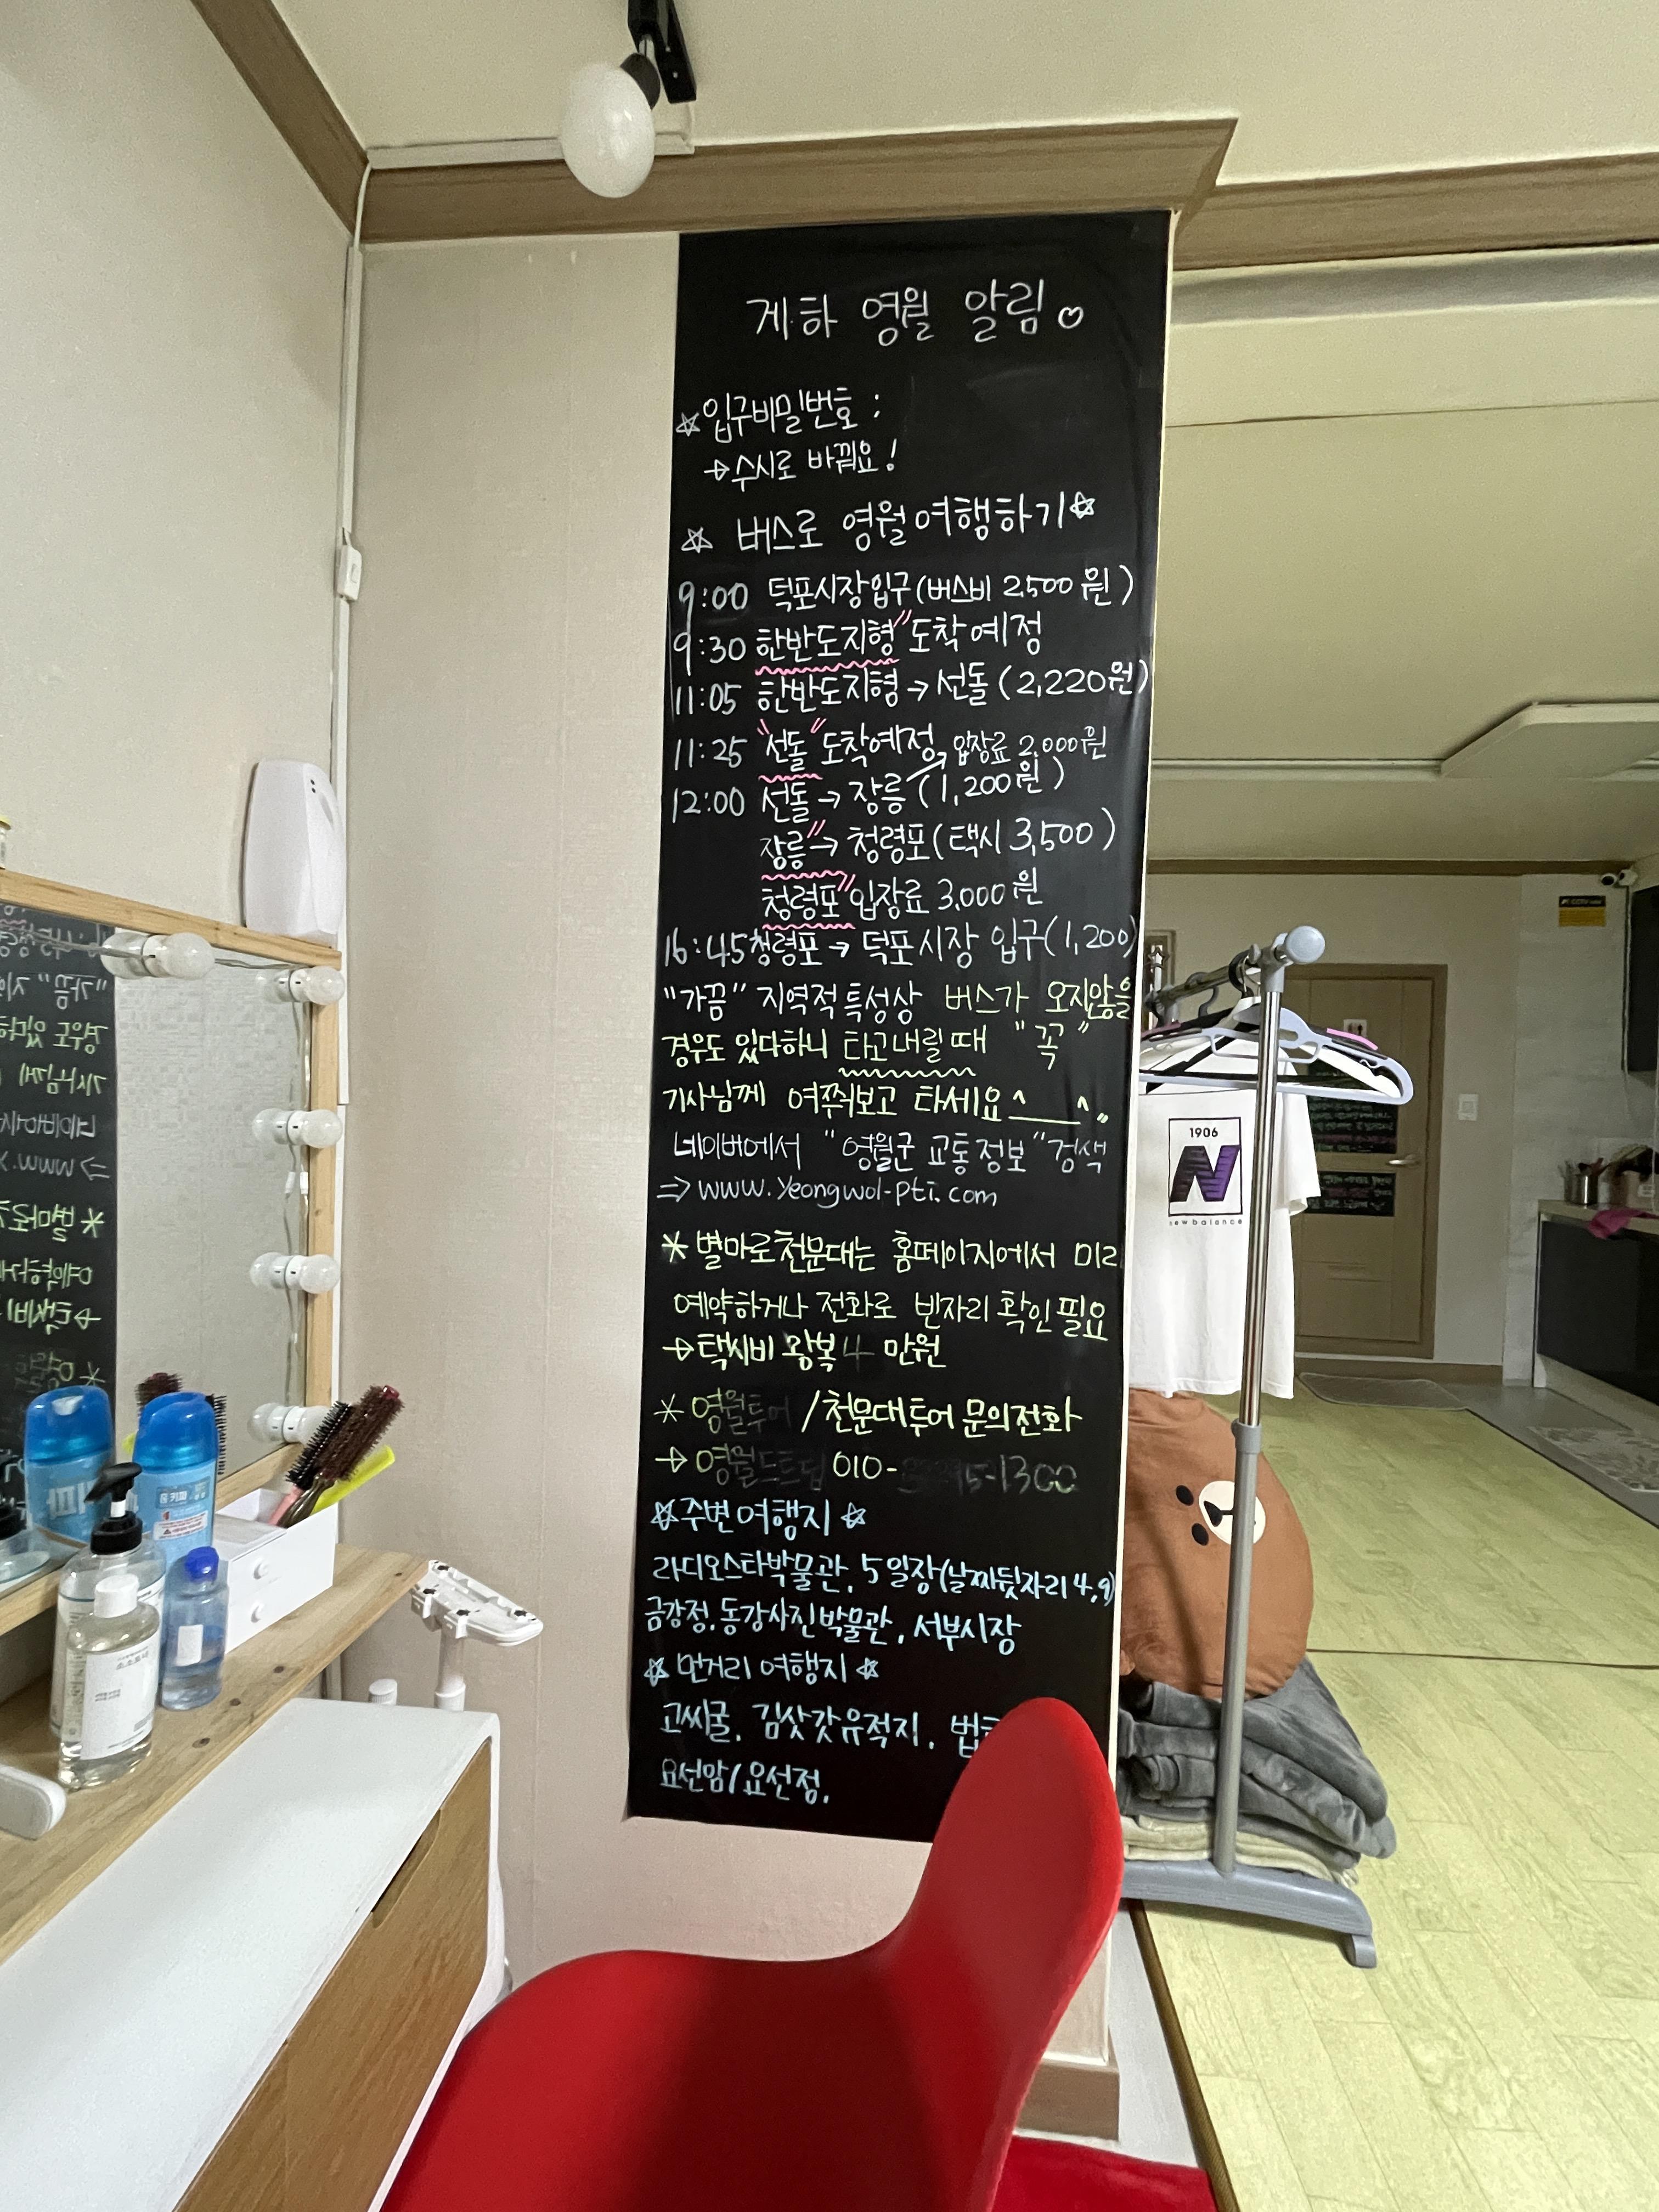 게하 영월 알림♡
☆입구비밀번호 :
→수시로 바꿔요!
☆ 버스로 영월여행하기☆
9:00 덕포시장입구(버스비 2,500원)
9:30 한반도지형" 도착예정
11:05 한반도지형→선돌 (2,220원)
11:25 "선돌" 도착예정 입장료 2,000원
12:00 선돌→장릉 (1,200원)
장릉"→청령포(택시 3,500)
청령포" 입장료 3,000원
16:45 청령포→덕포시장 입구(1,200)
"가끔" 지역적 특성상 버스가 오지않을
경우도 있다하니 타고내릴때 "꼭"
기사님께 여쭤보고 타세요^__^,,
네이버에서 "영월군 교통정보"검색
⇒ www.yeongwol-pti.com
* 별마로천문대는 홈페이지에서 미리
예약하거나 전화로 빈자리 확인필요
→택시비 왕복 4 만원
* 영월투어 /천문대투어 문의전화
→ 영월 010- -1300
☆주변여행지☆
라디오스타박물관, 5일장(날짜뒷자리4,9)
금강정, 동강사진박물관, 서부시장
☆ 먼거리 여행지☆
고씨굴, 김삿갓유적지,
요선암/요선정,
1906
N
newbalance
CCTV